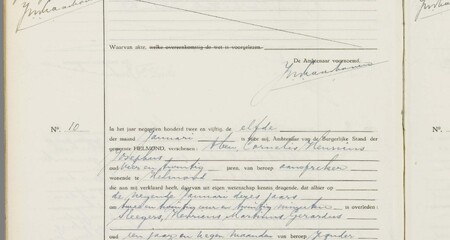 Waarvan akte, welke overeenkomstig de wet is voorgelezen.
De Ambtenaar voornoemd.
No. 10
In het jaar negentien honderd twee en vijftig, de elfde
der maand Januari is voor mij, Ambtenaar van de Burgerlijke Stand der
gemeente HELMOND, verschenen: Cornelis Henricus
Josephus
oud vier en twintig jaren, van beroep aanspreker
wonende te Helmond
die aan mij verklaard heeft, daarvan uit eigen wetenschap kennis dragende, dat alhier op
de negende Januari dezes jaars
om twee en twintig uur en twintig minuten is overleden:
Sleegers, Henricus Martinus Gerardus
oud een jaar en negen maanden van beroep zonder